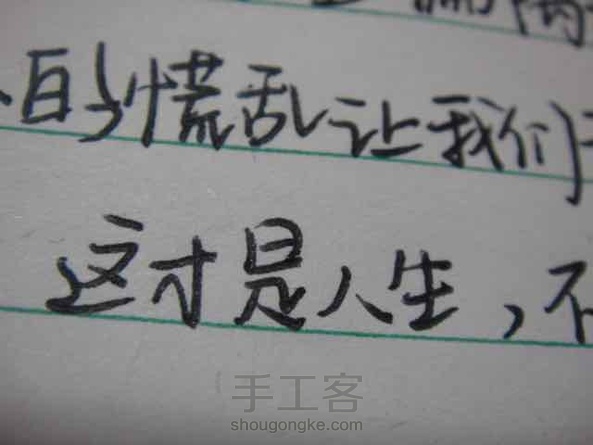 的慌乱让我们
这才是人生，不
手工客
shougongke.com